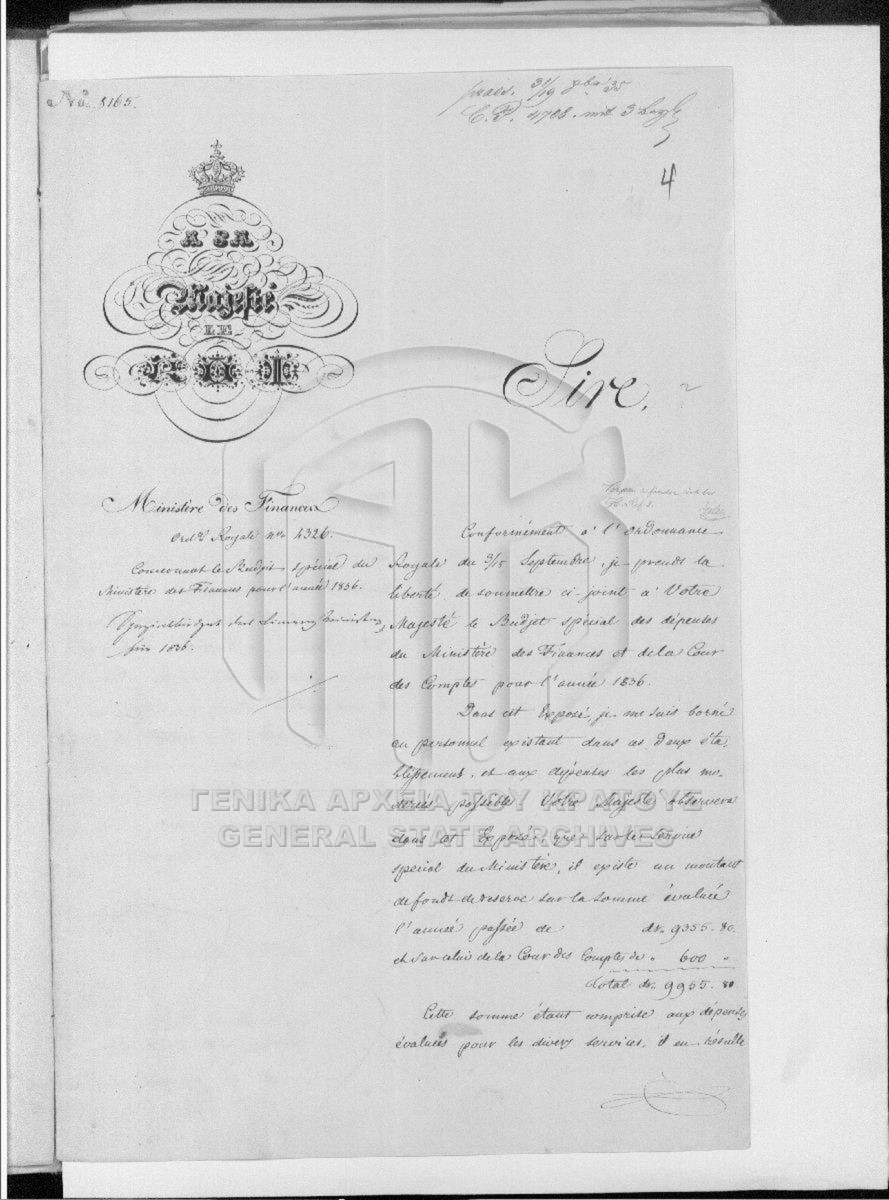 No. 8165.
praes. 31/19 8bre 35
C.P. 4788. mit 3
4
A SA
Majesté
LE
ROI
Sire,
Ministère des Finances
Ordce Royale no. 4326.
Concernant le Budjet spécial du
Ministère des Finances pour l'année 1836.
Spezialbudget des Finanzministeriums
für 1836.
Conformément à l'Ordonnance
Royale du 3/15 Septembre, je prends la
liberté de soumettre ci-joint à Votre
Majesté le Budjet spécial des dépenses
du Ministère des Finances et de la Cour
des Comptes pour l'année 1836.
Dans cet Exposé, je me suis borné
au personnel existant dans ces deux éta-
blissemens, et aux dépenses les plus mo-
derées possibles. Votre Majesté observera
dans cet Exposé, que sur le Service
spécial du Ministère, il existe un montant
de fonds de reserve sur la somme évaluée
l'année passée de dr. 9355. 80.
et sur celui de la Cour des Comptes de " 600 "
Total dr. 9955. 80
Cette somme étant comprise aux dépenses
évaluées pour les divers services, il en résulte
ΓΕΝΙΚΑ ΑΡΧΕΙΑ ΤΟΥ ΚΡΑΤΟΥΣ
GENERAL STATE ARCHIVES